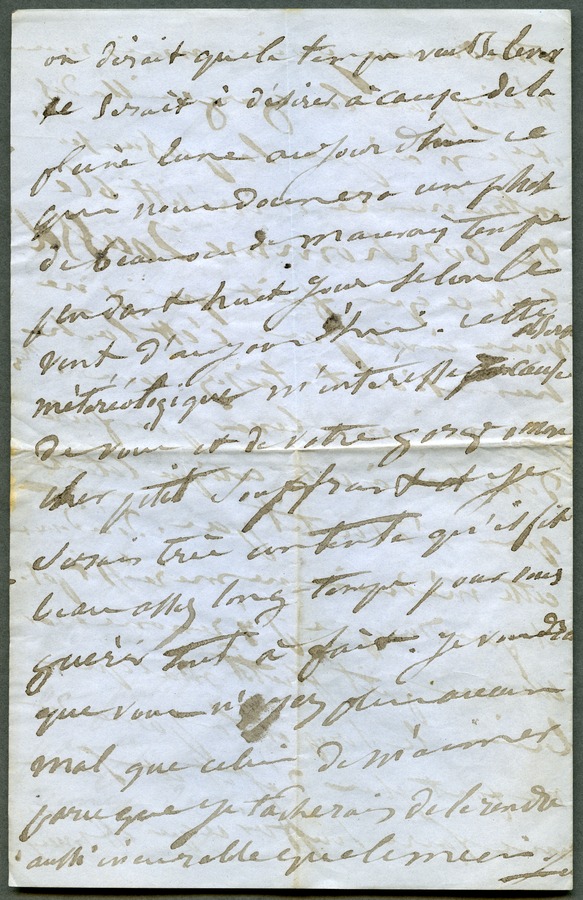 on dirait que le temps veut se lever
ce serait à désirer à cause de la
pleine lune aujourd'hui ce
qui nous donnera un
de beau ou de mauvais temps
pendant huit jours selon le
vent d'aujourd'hui. cette
météréologique m'intéresse à cause
de vous et de votre gorge mon
cher petit souffrant et je
serais très contente qu'il fit
beau assez long-temps pour vous
guérir tout à fait. je voudrais
que vous n'ayez plus aucun
mal que celui de m'aimer
parce que je tâcherais de le rendre
aussi incurable que le mien